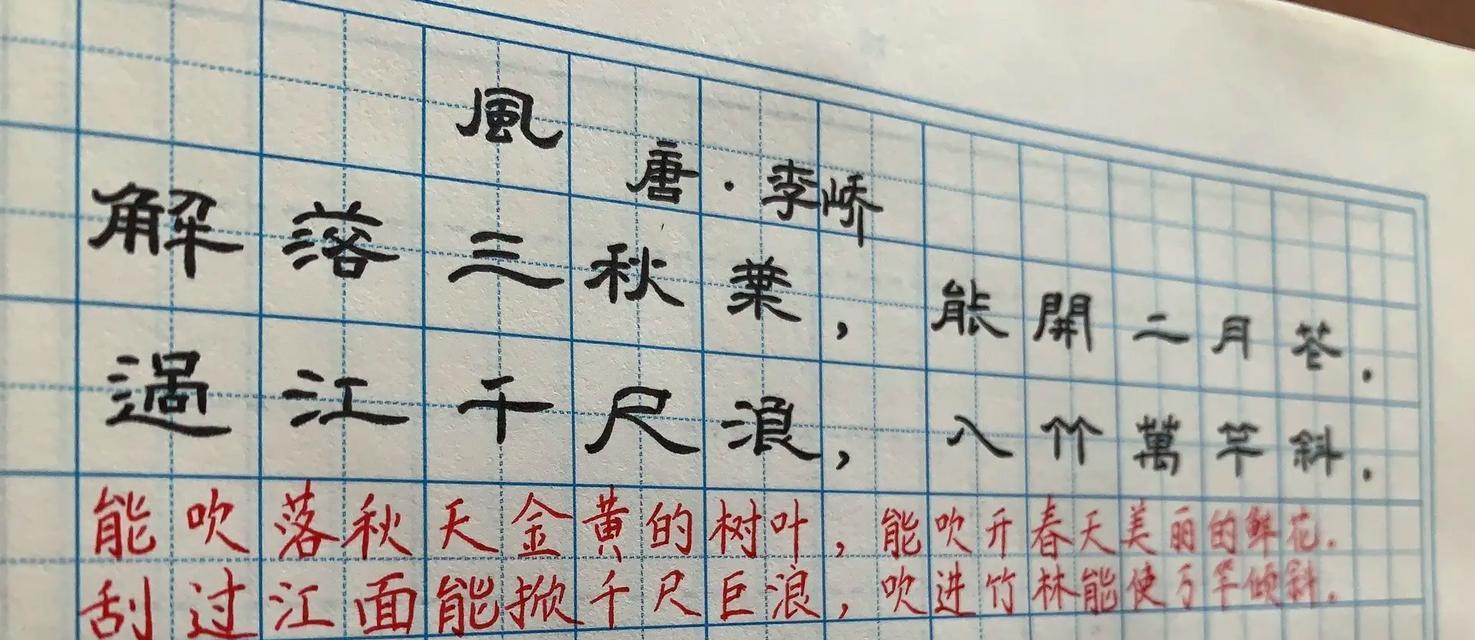 風
唐·李峤
解落三秋葉，能開二月花.
過江千尺浪，入竹萬竿斜.
能吹落秋天金黄的树叶，能吹开春天美丽的鲜花.
刮过江面能掀千尺巨浪，吹进竹林能使万竿倾斜.